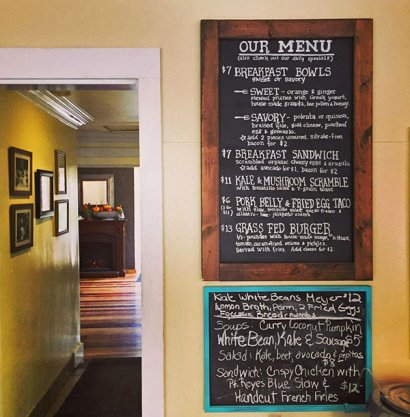 OUR MENU
(also check out our daily specials!)
$7 BREAKFAST BOWLS
sweet or savory
SWEET - orange & ginger
stewed prunes with Greek yogurt,
house made granola, bee pollen & honey.
SAVORY - polenta or quinoa,
braised kale, soft cheese, poached
egg & gremolata.
add 2 pieces uncured, nitrate-free
bacon for $2
$7 BREAKFAST SANDWICH
scrambled organic cheesy eggs & arugula
add avocado for $1, bacon for $2
$11 KALE & MUSHROOM SCRAMBLE
with tomatillo salsa & 7-grain toast
$6 PORK BELLY & FRIED EGG TACO
with slaw,
cilantro-lime-jalapeño crema
$13 GRASS FED BURGER
1/2 pounder with house-made mayo, lettuce,
tomato, caramelized onions & pickles.
Served with fries. Add cheese for $2
Kale White Beans Meyer $12
Lemon Broth, Parm, 2 Fried Eggs
Focaccia Breadcrumbs
Soups: Curry Coconut Pumpkin
White Bean, Kale & Sausage $5
Salad: Kale, beet, avocado & Pepitas
$8
Sandwich: Crispy Chicken with
Pt. Reyes Blue, Slaw & $12
Handcut French Fries